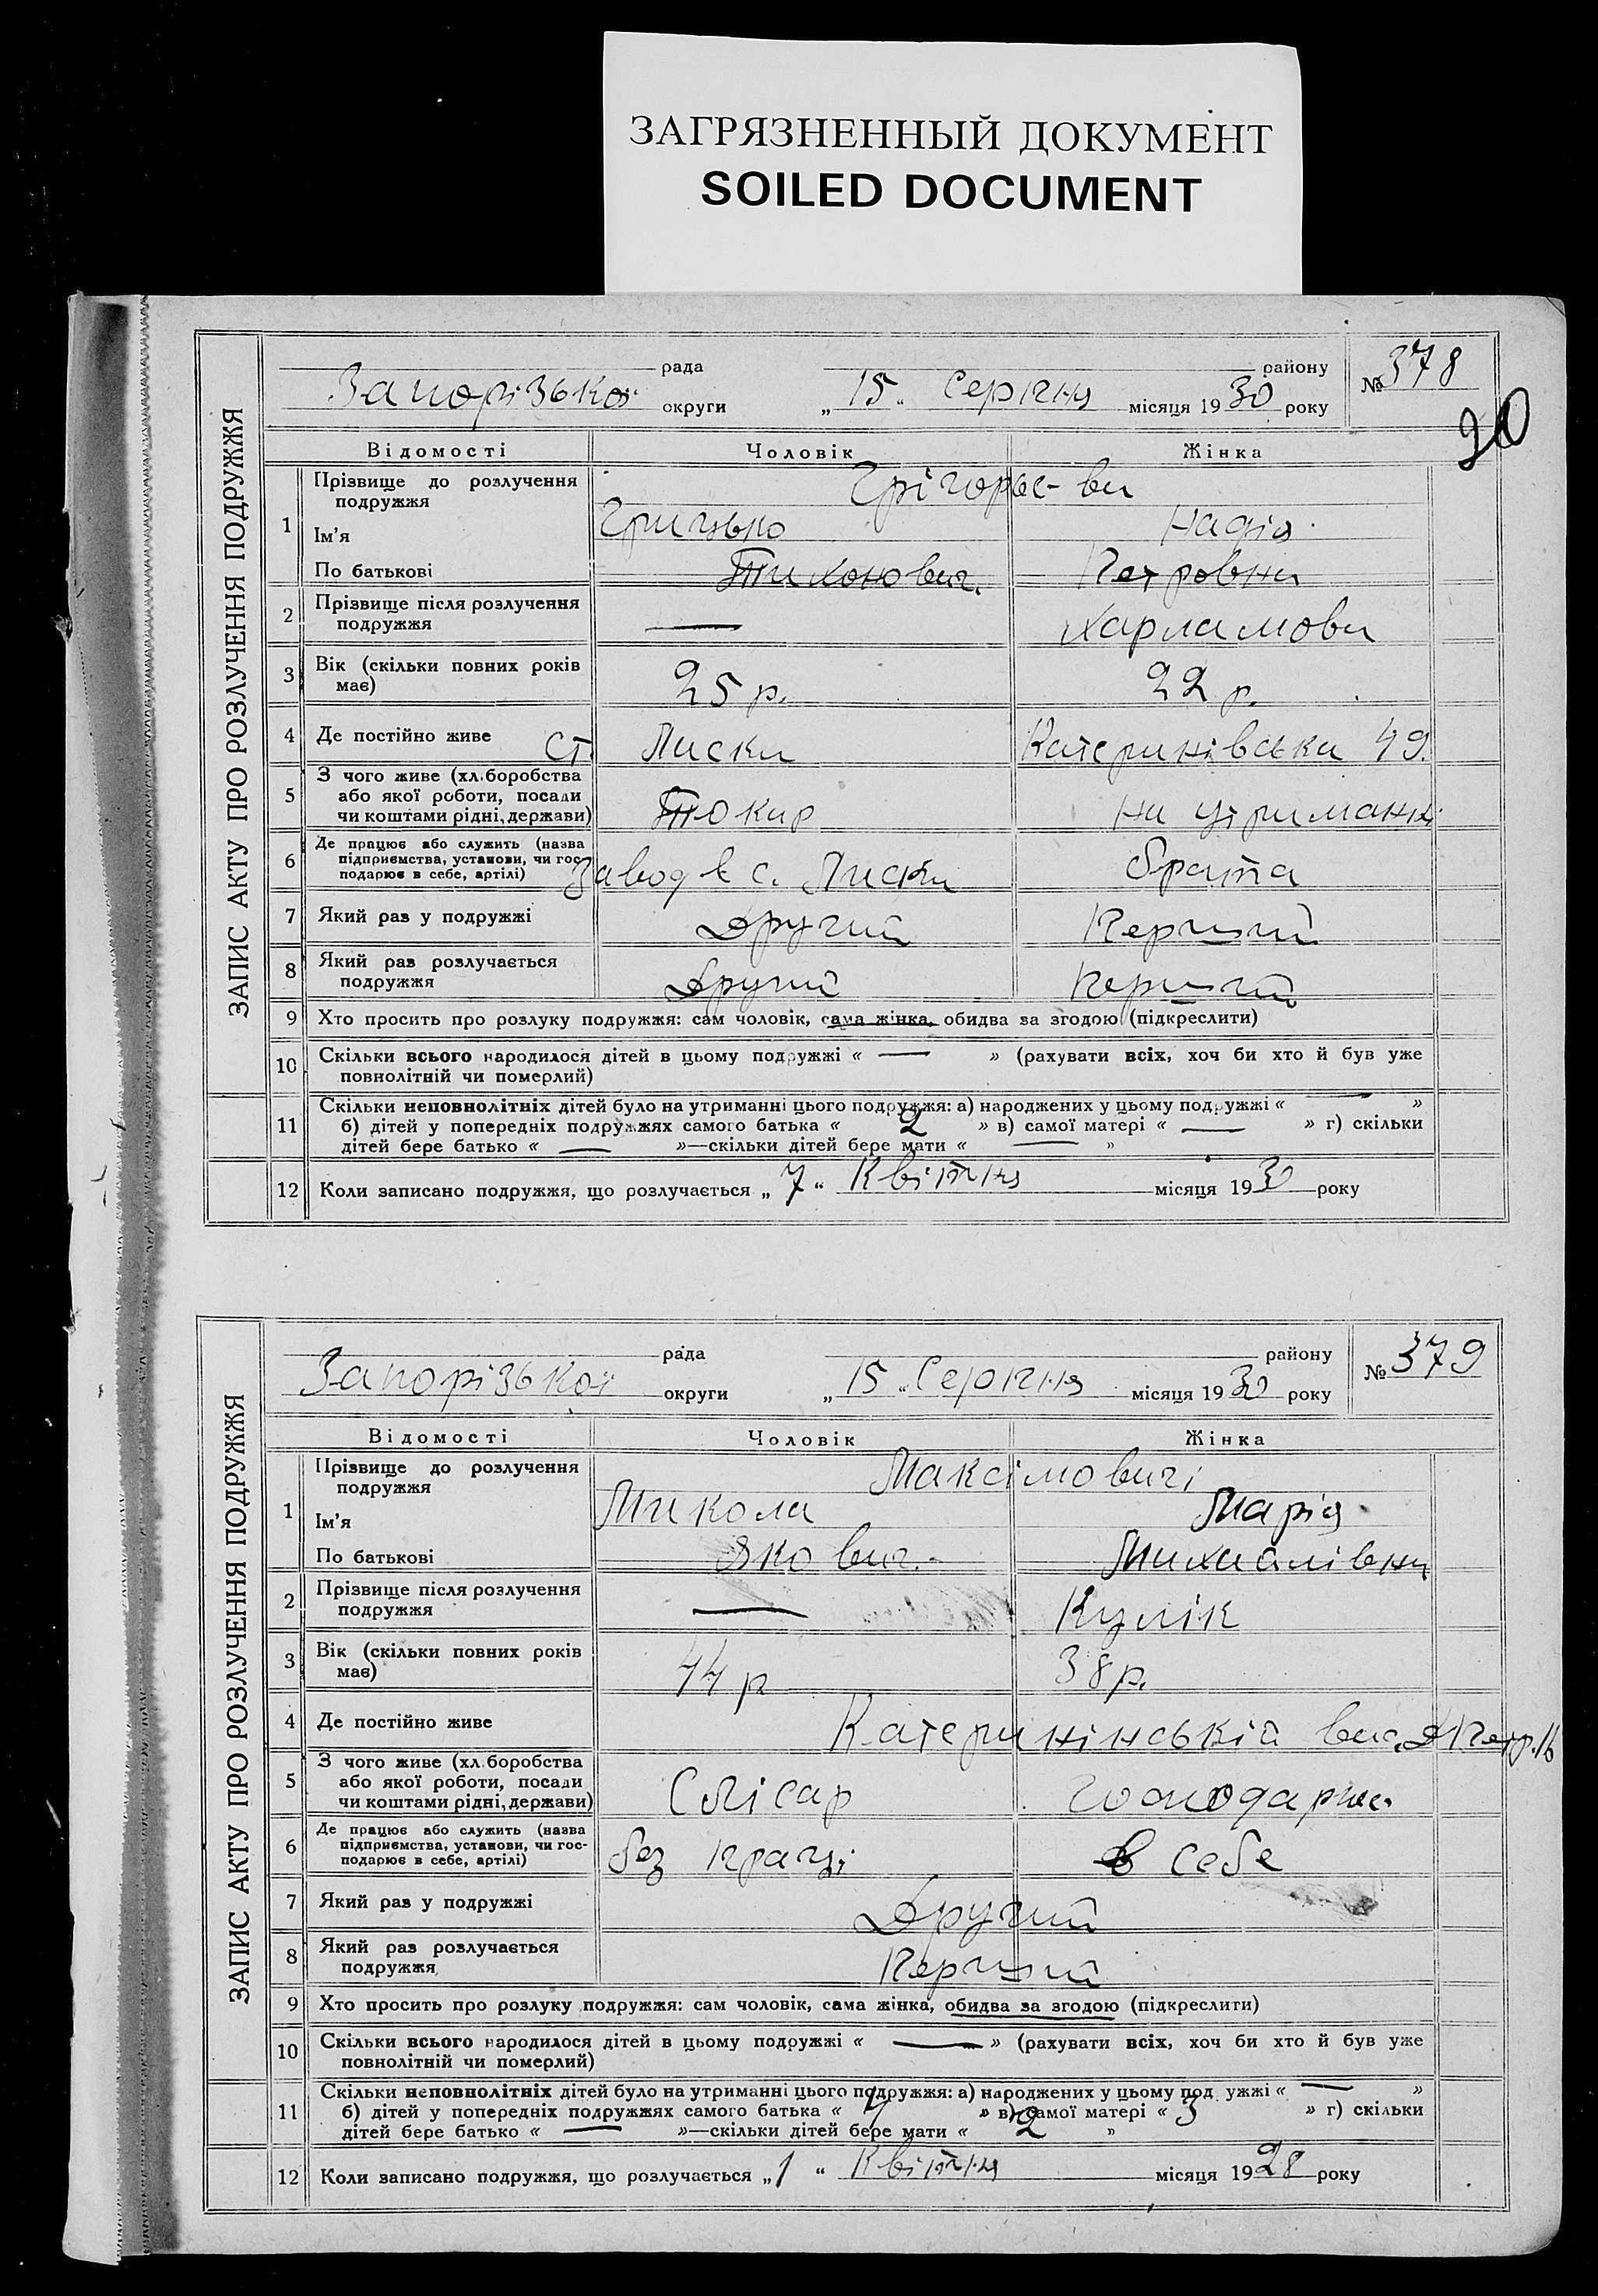 ЗАГРЯЗНЕННЫЙ ДОКУМЕНТ
SOILED DOCUMENT
ЗАПИС АКТУ ПРО РОЗЛУЧЕННЯ ПОДРУЖЖЯ
рада району № 378
Запорізької округи „ 15 “ Серпня місяця 1930 року
20
Відомості Чоловік Жінка
1 Прізвище до розлучення подружжя Грігорьє-ви
Ім'я Грицько Надія
По батькові Тихонович. Петровна
2 Прізвище після розлучення подружжя — Харламова
3 Вік (скільки повних років має) 25 р. 22 р.
4 Де постійно живе ст. Лиски Катеринівська 49.
5 З чого живе (хл.боробства або якої роботи, посади чи коштами рідні, держави) Токар на утриманні
6 Де працює або служить (назва підприємства, установи, чи господарює в себе, артілі) Завод в с. Лиски брата
7 Який раз у подружжі Другий Перший
8 Який раз розлучається подружжя Другий Перший
9 Хто просить про розлуку подружжя: сам чоловік, сама жінка, обидва за згодою (підкреслити)
10 Скільки всього народилося дітей в цьому подружжі « — » (рахувати всіх, хоч би хто й був уже
повнолітній чи померлий)
11 Скільки неповнолітніх дітей було на утриманні цього подружжя: а) народжених у цьому подружжі « — »
б) дітей у попередніх подружжях самого батька « 2 » в) самої матері « — » г) скільки
дітей бере батько « — »—скільки дітей бере мати « — »
12 Коли записано подружжя, що розлучається „ 7 “ Квітня місяця 1930 року
ЗАПИС АКТУ ПРО РОЗЛУЧЕННЯ ПОДРУЖЖЯ
рада району № 379
Запорізької округи „ 15 “ Серпня місяця 1930 року
Відомості Чоловік Жінка
1 Прізвище до розлучення подружжя Максімовичі
Ім'я Микола Марія
По батькові Якович. Михайлівна
2 Прізвище після розлучення подружжя — Кулік
3 Вік (скільки повних років має) 44 р 38 р.
4 Де постійно живе Катеринінській вис.
5 З чого живе (хл.боробства або якої роботи, посади чи коштами рідні, держави) Слісар господарює
6 Де працює або служить (назва підприємства, установи, чи господарює в себе, артілі) без праці в себе
7 Який раз у подружжі Другий
8 Який раз розлучається подружжя Перший
9 Хто просить про розлуку подружжя: сам чоловік, сама жінка, обидва за згодою (підкреслити)
10 Скільки всього народилося дітей в цьому подружжі « — » (рахувати всіх, хоч би хто й був уже
повнолітній чи померлий)
11 Скільки неповнолітніх дітей було на утриманні цього подружжя: а) народжених у цьому под ужжі « — »
б) дітей у попередніх подружжях самого батька « » в) самої матері « 3 » г) скільки
дітей бере батько « — »—скільки дітей бере мати « 2 »
12 Коли записано подружжя, що розлучається „ 1 “ Квітня місяця 1928 року